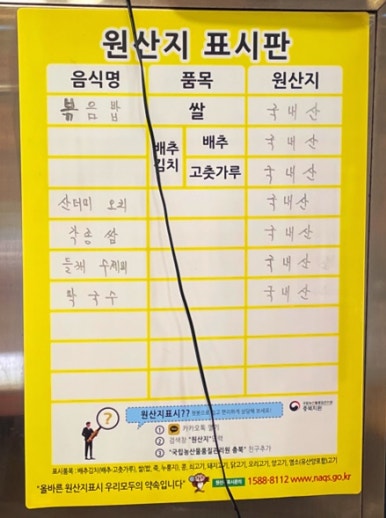 원산지 표시판
음식명 품목 원산지
볶음밥 쌀 국내산
배추김치 배추 국내산
고춧가루 국내산
산더미 오치 국내산
각종 쌈 국내산
들깨 수제비 국내산
막국수 국내산
원산지표시?? 챗봇으로 쉽고 편리하게 상담해 보세요!
국립농산물품질관리원
충북지원
① 카카오톡 열기
② 검색창 "원산지"입력
③ "국립농산물품질관리원 충북" 친구추가
표시품목 : 배추김치(배추·고춧가루), 쌀(밥, 죽, 누룽지), 콩, 쇠고기, 돼지고기, 닭고기, 오리고기, 양고기, 염소(유산양포함)고기
"올바른 원산지표시 우리모두의 약속입니다" 원산지표시문의 1588-8112 www.naqs.go.kr